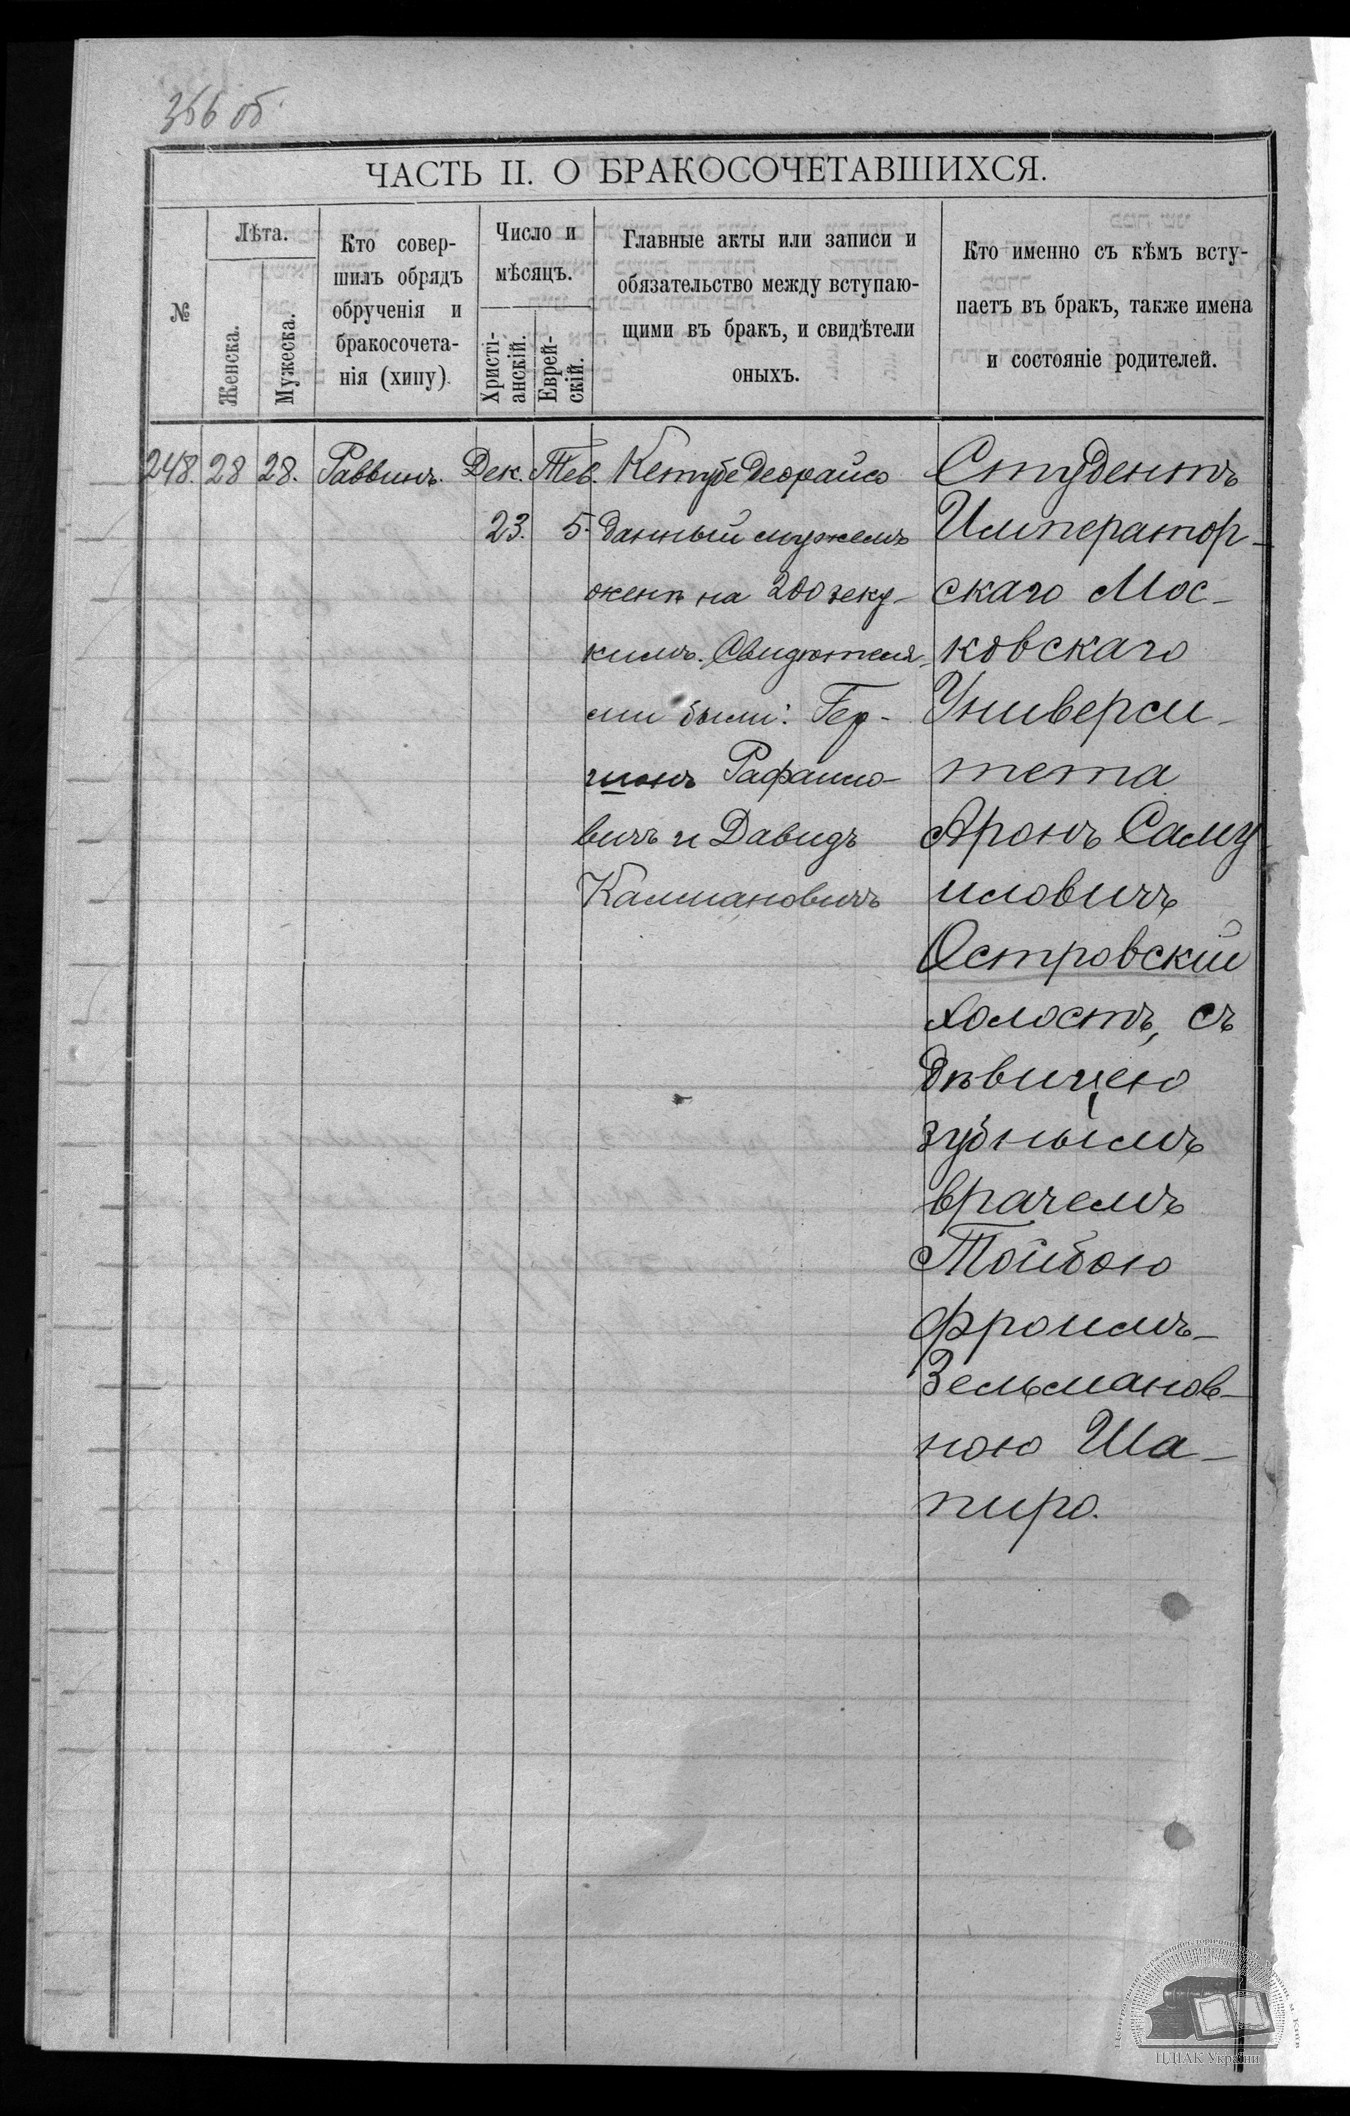 366 об.
ЧАСТЬ II. О БРАКОСОЧЕТАВШИХСЯ.
№
Лѣта.
Женска.
Мужеска.
Кто совер-
шилъ обрядъ
обрученія и
бракосочета-
нія (хипу).
Число и
мѣсяцъ.
Христі-
анскій.
Еврей-
скій.
Главные акты или записи и
обязательство между вступаю-
щими въ бракъ, и свидѣтели
оныхъ.
Кто именно съ кѣмъ всту-
паетъ въ бракъ, также имена
и состояніе родителей.
248.
28
28.
Раввинъ.
Дек.
23.
Тев.
5.
Кетубе Деорайсо
данный мужемъ
женѣ на 200 зеку-
кимъ. Свидѣтеля-
ми были: Гер-
шонъ Рафаило-
вичъ и Давидъ
Калмановичъ
Студентъ
Император-
скаго Мос-
ковскаго
Универси-
тета
Аронъ Саму
иловичъ
Островскій
холостъ, съ
дѣвицею
зубнымъ
врачемъ
Тойбою
Фроимъ-
Зельманов-
ною Ша-
пиро.
ЦДІАК України